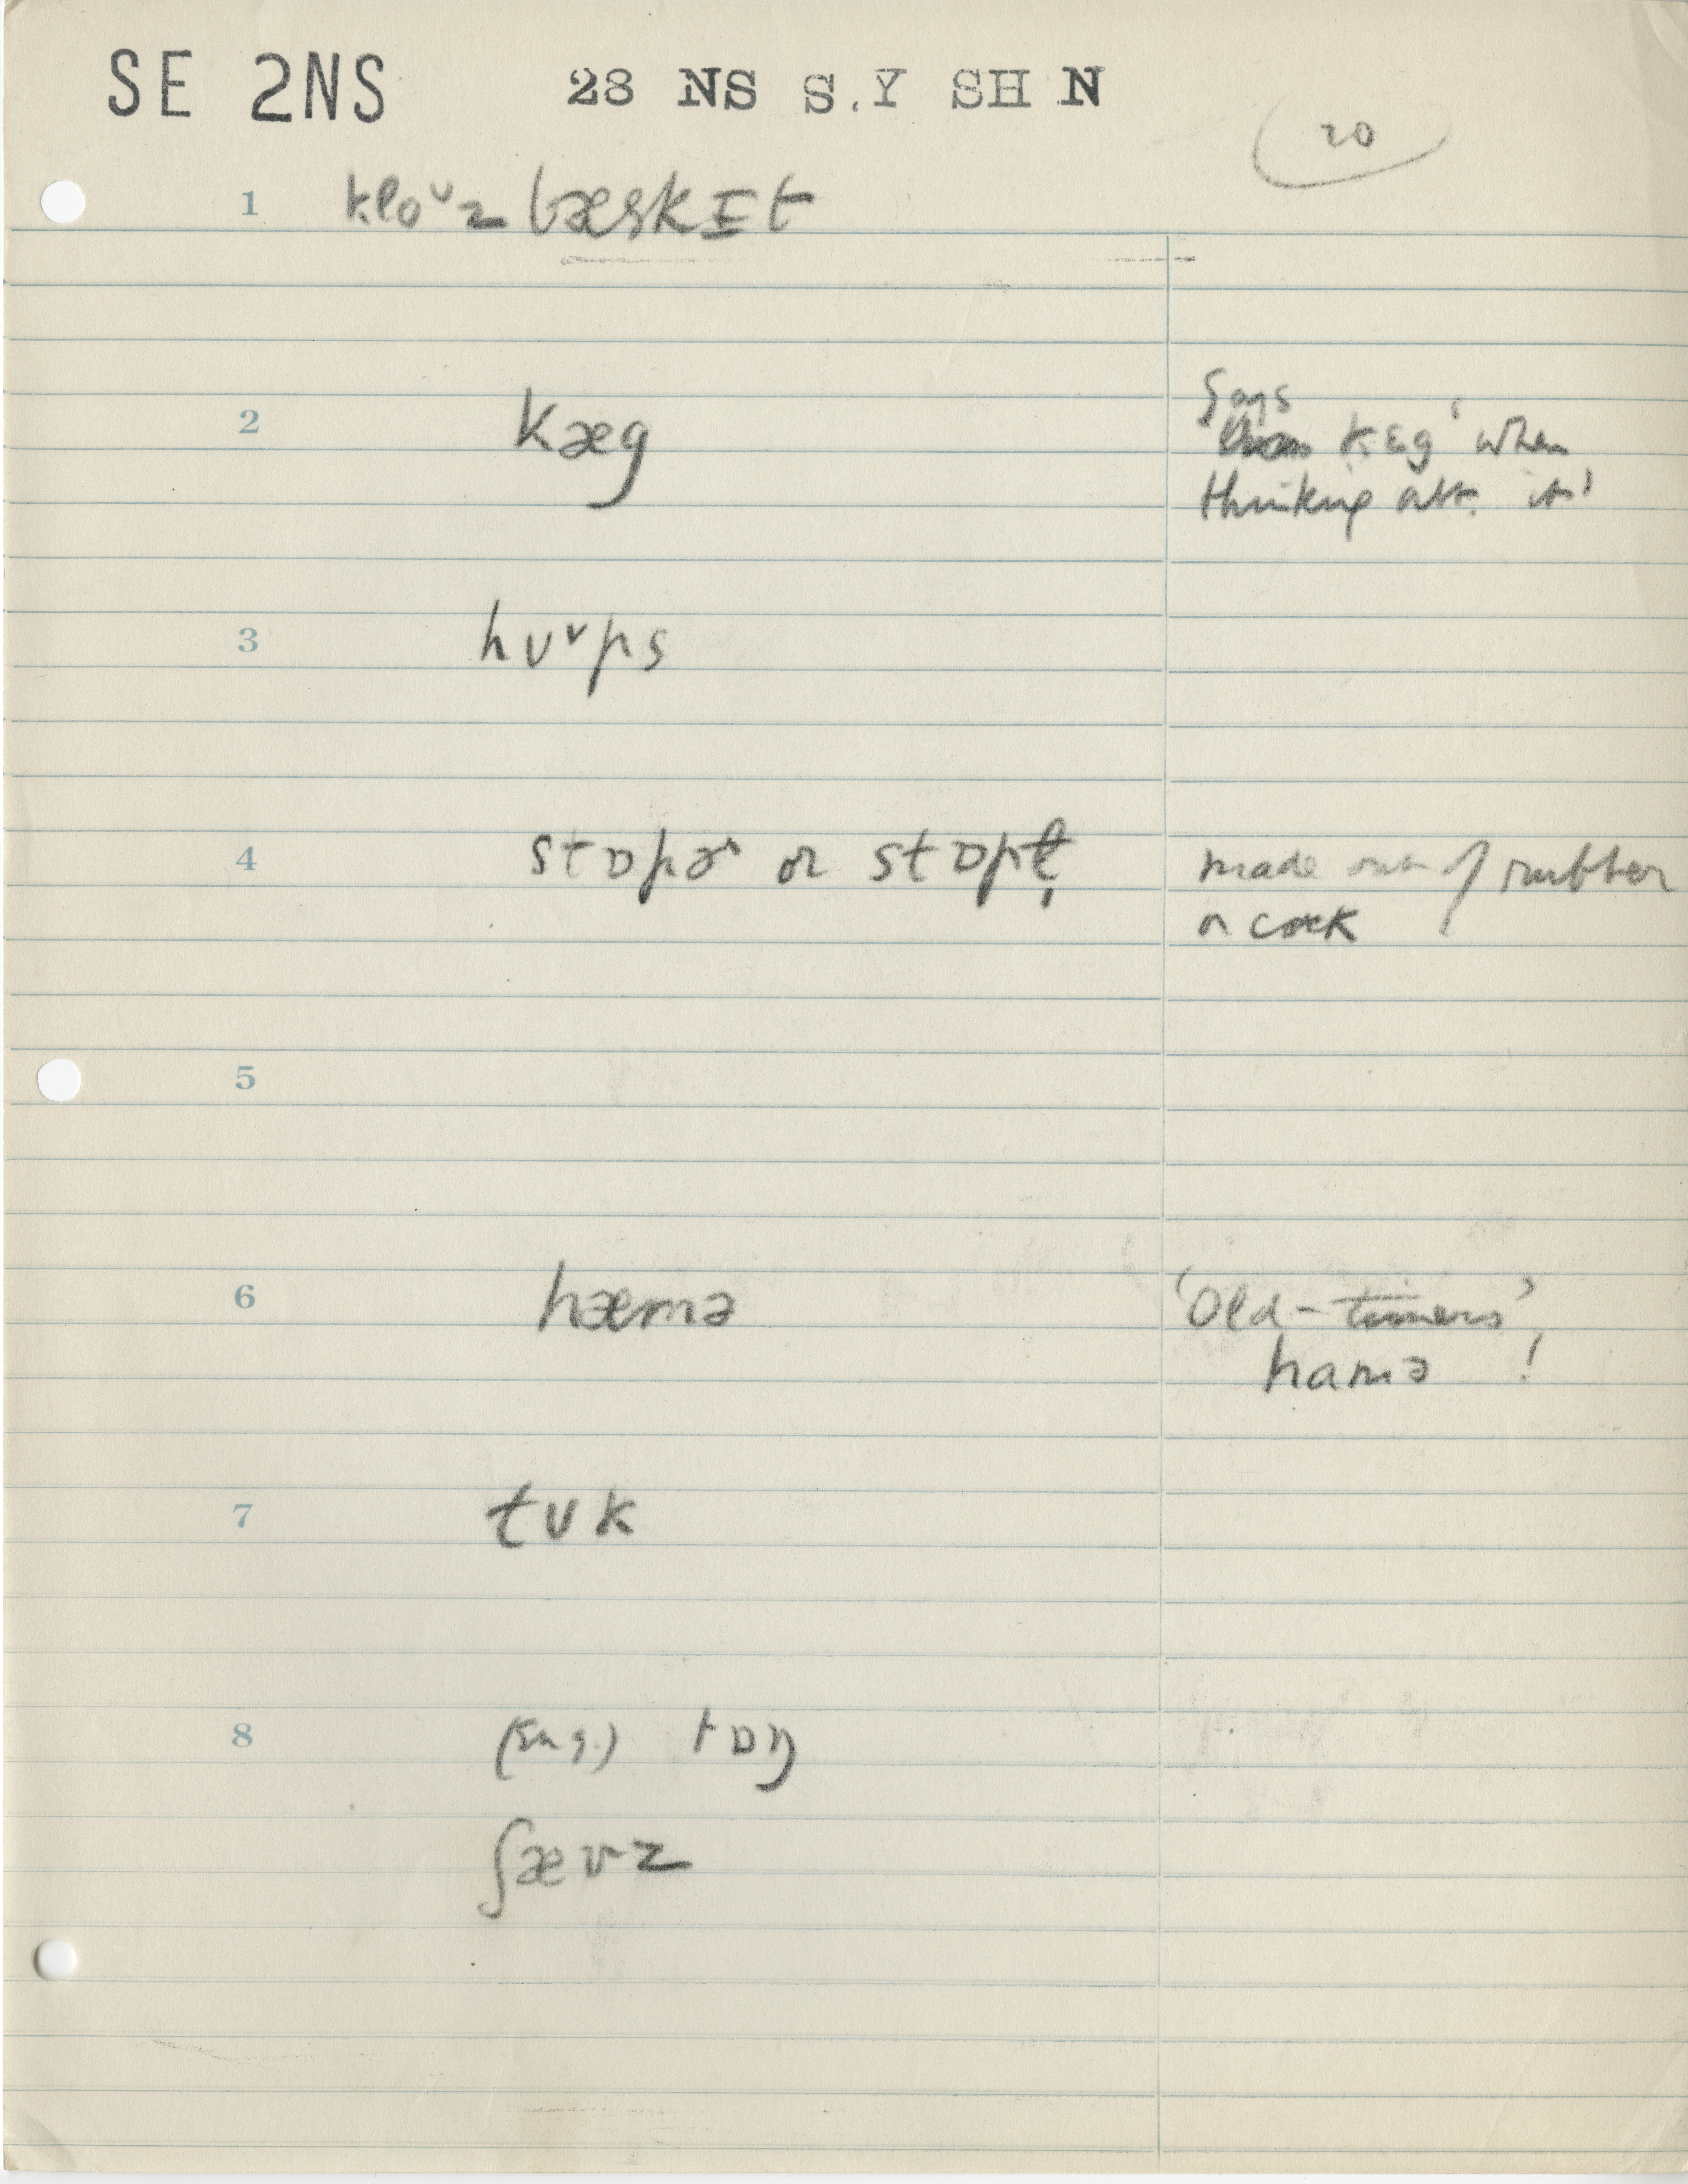 SE 2NS 23 NS S.Y SH N
20
1 kloᴜz bæskɪt
2 kæg
Says
'kɛg' when
thinking abt. it!
3 hᴜᵛps
4 stɒpɚ or stɒpl̩
made out of rubber
or cork
5
6 hæmə
'Old-timers'
hamə !
7 tᴜk
8 (Eng.) tɒŋ
ʃævz